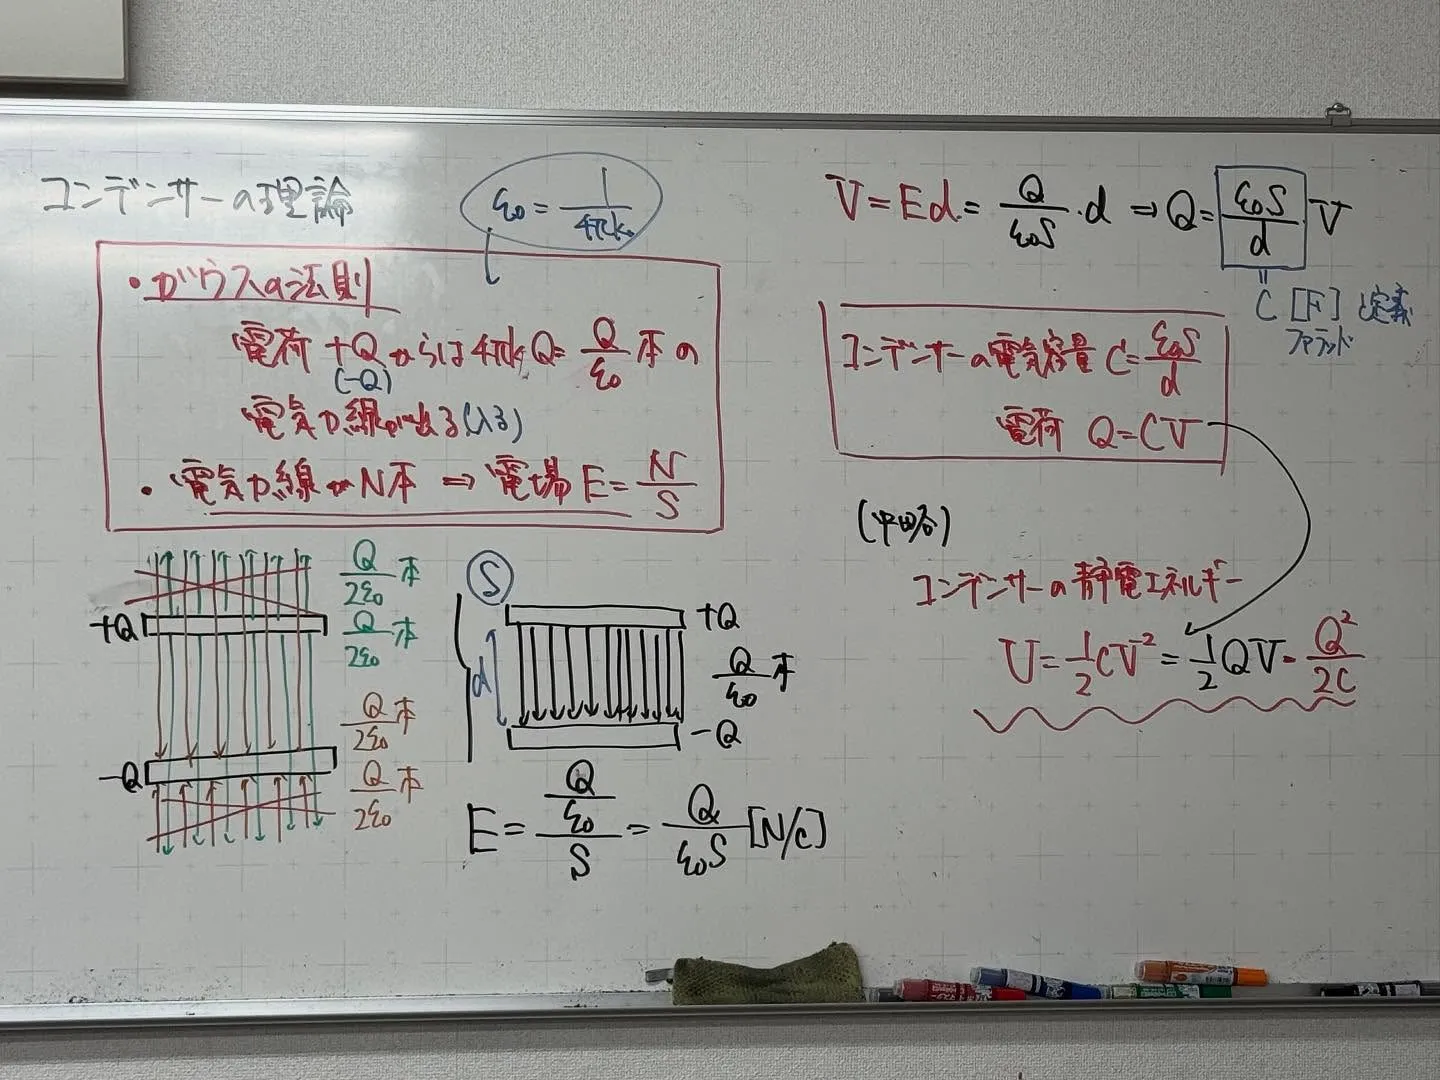 コンデンサーの理論
ε₀ = 1/4πk₀
・ガウスの法則
電荷 +Q からは 4πk₀Q = Q/ε₀ 本の
(-Q)
電気力線が出る(入る)
・電気力線が N本 ⇒ 電場 E = N/S
Q/2ε₀ 本
+Q
Q/2ε₀ 本
Q/2ε₀ 本
-Q
Q/2ε₀ 本
S
+Q
d
Q/ε₀ 本
-Q
E = (Q/ε₀)/S = Q/ε₀S [N/C]
V = Ed = Q/ε₀S · d ⇒ Q = ε₀S/d V
"
C [F] と定義
ファラッド
コンデンサーの電気容量 C = ε₀S/d
電荷 Q = CV
コンデンサーの静電エネルギー
U = 1/2 CV² = 1/2 QV = Q²/2C